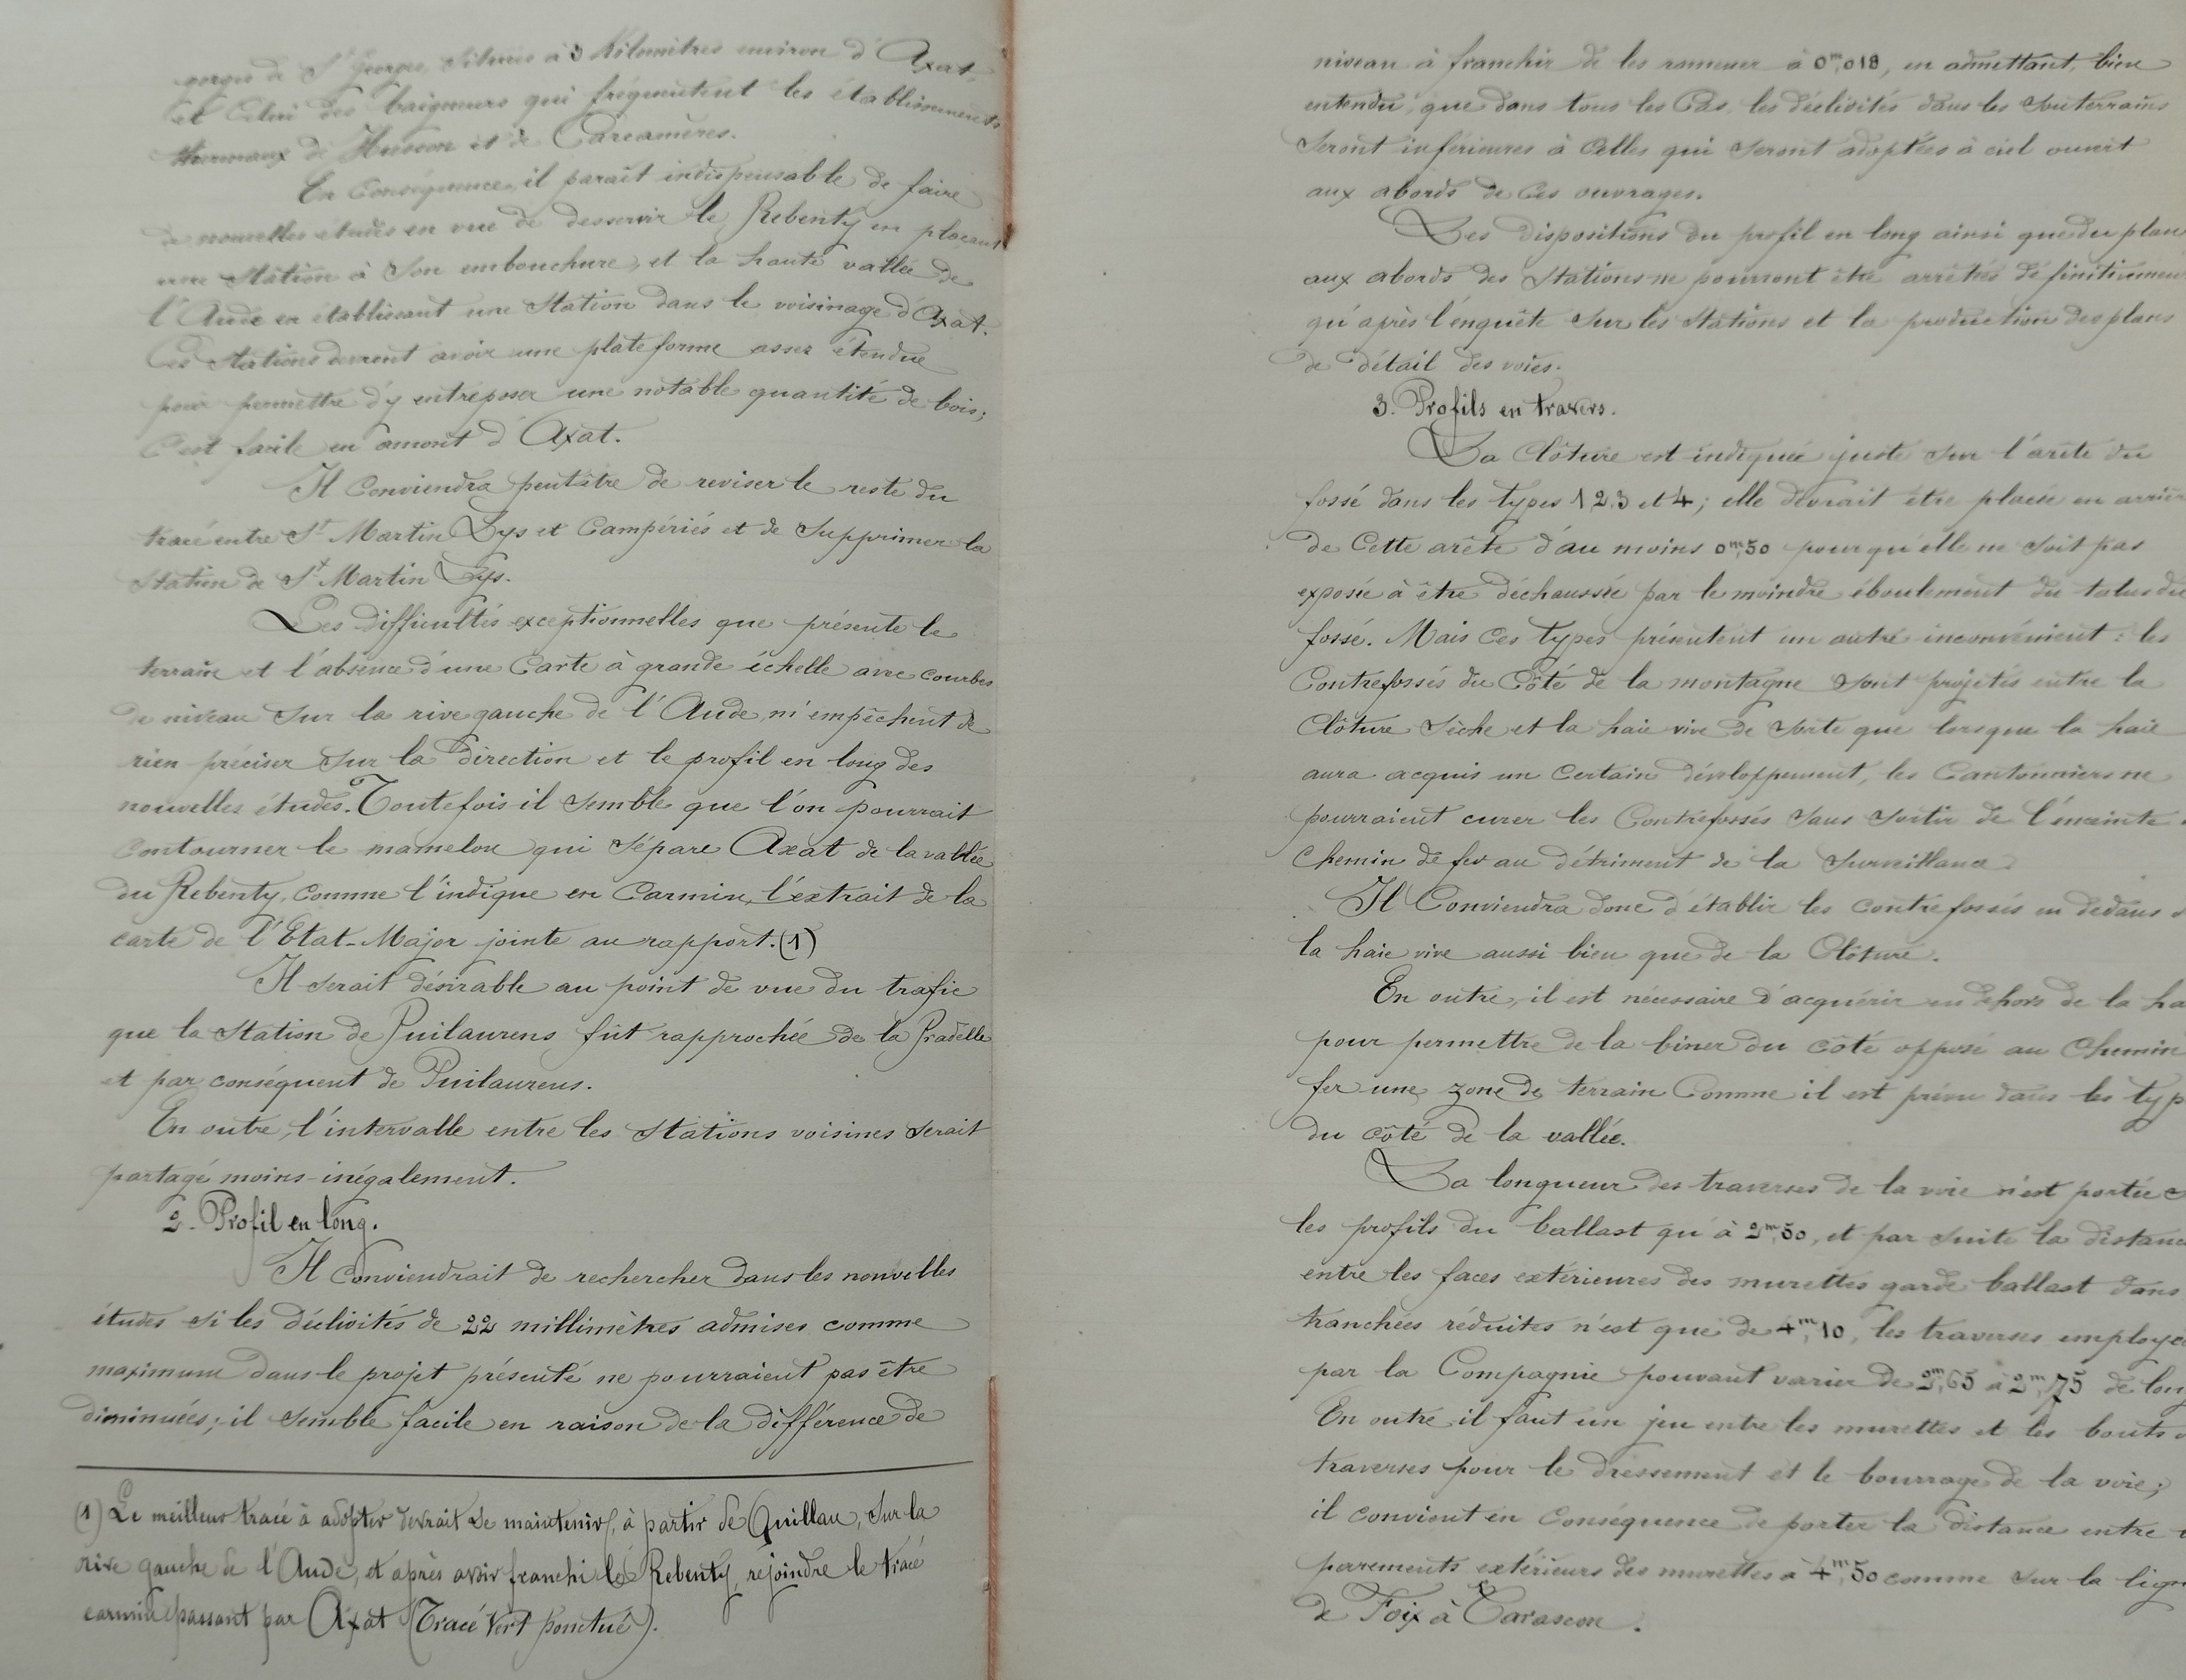 gorges de St Georges, situées à 3 Kilomètres environ d'Axat,
et celui des baigneurs qui fréquentent les établissements
thermaux de Husson et de Carcanières.
En conséquence, il paraît indispensable de faire
de nouvelles études en vue de desservir le Rebenty en plaçant
une station à son embouchure, et la haute vallée de
l'Aude en établissant une station dans le voisinage d'Axat.
Ces stations devront avoir une plateforme assez étendue
pour permettre d'y entreposer une notable quantité de bois;
c'est facile en amont d'Axat.
Il conviendra peut être de reviser le reste du
tracé entre St Martin Lys et Campériés et de supprimer la
station de St Martin Lys.
Les difficultés exceptionnelles que présente le
terrain et l'absence d'une carte à grande échelle avec courbes
de niveau sur la rive gauche de l'Aude, m'empêchent de
rien préciser sur la direction et le profil en long des
nouvelles études. Toutefois il semble que l'on pourrait
contourner le mamelon qui sépare Axat de la vallée
du Rebenty, comme l'indique en carmin, l'extrait de la
carte de l'Etat-Major jointe au rapport. (1)
Il serait désirable au point de vue du trafic
que la station de Puilaurens fût rapprochée de la Pradelle
et par conséquent de Puilaurens.
En outre, l'intervalle entre les stations voisines serait
partagé moins inégalement.
2. Profil en long.
Il conviendrait de rechercher dans les nouvelles
études si les déclivités de 22 millimètres admises comme
maximum dans le projet présenté ne pourraient pas être
diminuées; il semble facile en raison de la différence de
(1) Le meilleur tracé à adopter devrait se maintenir, à partir de Quillan, sur la
rive gauche de l'Aude, et après avoir franchi le Rebenty, rejoindre le tracé
carmin passant par Axat (Tracé Vert ponctué).
niveau à franchir de les ramener à 0m,018, en admettant, bien
entendu, que dans tous les cas, les déclivités dans les souterrains
seront inférieures à celles qui seront adoptées à ciel ouvert
aux abords de ces ouvrages.
Les dispositions du profil en long ainsi que du plan
aux abords des stations ne pourront être arrêtés définitivemen
qu'après l'enquête sur les stations et la production des plans
de détail des voies.
3. Profils en travers.
La clôture est indiquée juste sur l'arête du
fossé dans les types 1 2, 3 et 4; elle devrait être placée en arrièr
de cette arête d'au moins 0m,50 pour qu'elle ne soit pas
exposée à être déchaussée par le moindre éboulement du talus du
fossé. Mais ces types présentent un autre inconvénient: les
contrefossés du côté de la montagne sont projetés entre la
clôture sèche et la haie vive de sorte que lorsque la haie
aura acquis un certain développement, les cantonniers ne
pourraient curer les contrefossés sans sortir de l'enceinte
chemin de fer au détriment de la surveillance.
Il conviendra donc d'établir les contrefossés en dedans
la haie vive aussi bien que de la clôture.
En outre, il est nécessaire d'acquérir en dehors de la ha
pour permettre de la biner du côté opposé au chemin
fer une zone de terrain comme il est prévu dans les typ
du côté de la vallée.
La longueur des traverses de la voie n'est portée
les profils du ballast qu'à 2m,50, et par suite la distanc
entre les faces extérieures des murettes garde ballast dans
tranchées réduites n'est que de 4m,10, les traverses employé
par la Compagnie pouvant varier de 2m,65 à 2m,75 de lon
En outre il faut un jeu entre les murettes et les bouts
traverses pour le dressement et le bourrage de la voie;
il convient en conséquence de porter la distance entre
parements extérieurs des murettes à 4m,50 comme sur la lign
de Foix à Tarascon.